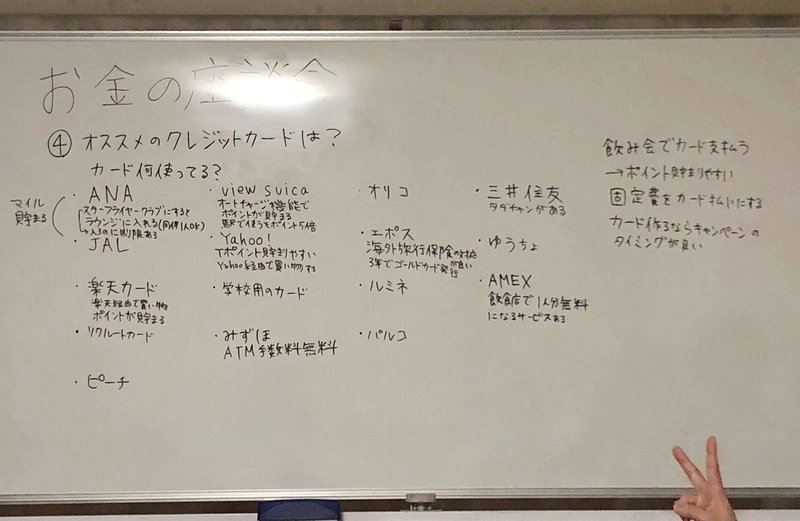 お金の座談会
④ オススメのクレジットカードは？
カード何使ってる？
マイル
貯まる
・ANA
スターフライヤークラブにすると
ラウンジに入れる(同伴1人OK)
→入るのに制限ある
・JAL
・楽天カード
楽天経由で買い物
ポイントが貯まる
・リクルートカード
・ピーチ
・view suica
オートチャージ機能で
ポイントが貯まる
駅で使うとポイント5倍
・Yahoo!
Tポイント貯まりやすい
Yahoo経由で買い物する
・学校用のカード
・みずほ
ATM手数料無料
・オリコ
・エポス
海外旅行保険の対応が良い
3年でゴールドカード発行
・ルミネ
・パルコ
・三井住友
タダチャンがある
・ゆうちょ
・AMEX
飲食店で1人分無料
になるサービスある
飲み会でカード支払う
→ポイント貯まりやすい
固定費をカード払いにする
カード作るならキャンペーンの
タイミングが良い